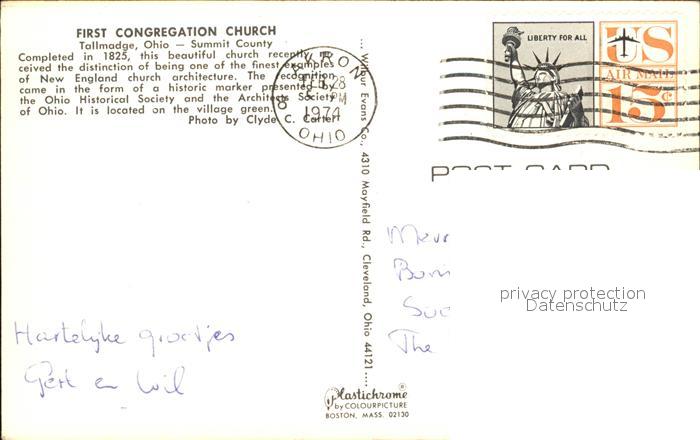 FIRST CONGREGATION CHURCH
Tallmadge, Ohio — Summit County
Completed in 1825, this beautiful church recently re-
ceived the distinction of being one of the finest examples
of New England church architecture. The recognition
came in the form of a historic marker presented by
the Ohio Historical Society and the Architects Society
of Ohio. It is located on the village green.
Photo by Clyde C. Carter
28
PM
1974
OHIO
LIBERTY FOR ALL
US
AIR MAIL
15¢
POST CARD
... Wilbur Evans Co., 4310 Mayfield Rd., Cleveland, Ohio 44121 ....
The
privacy protection
Datenschutz
Hartelijke groetjes
Gert en Wil
Plastichrome®
by COLOURPICTURE
BOSTON, MASS. 02130